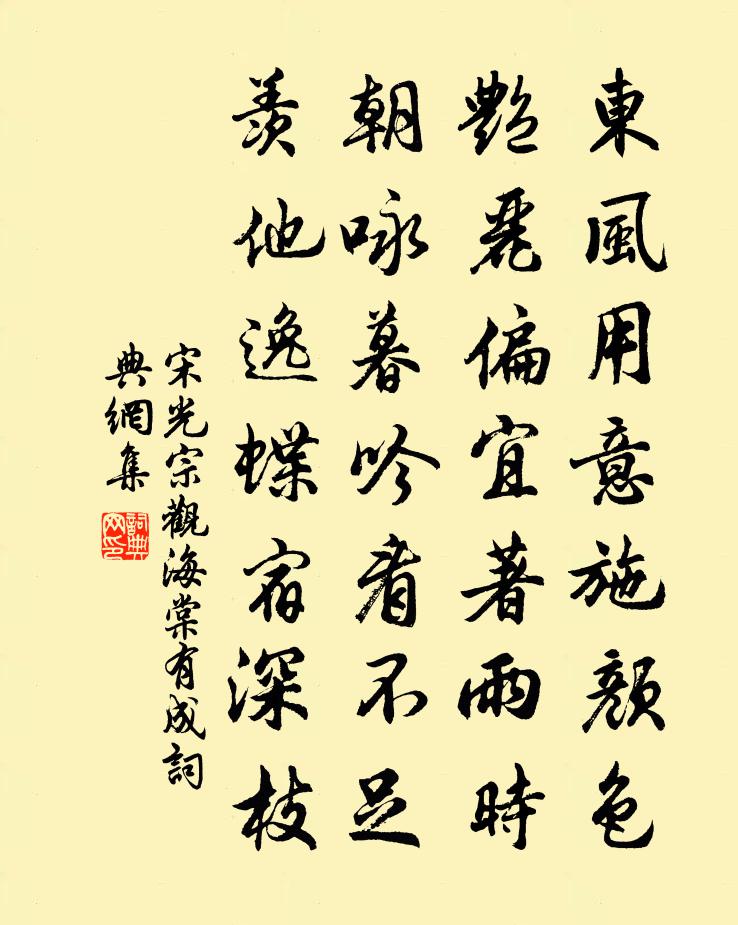 東風用意施顏色
艷麗偏宜著雨時
朝咏暮吟看不足
羨他逸蝶宿深枝
宋光宗觀海棠有成詞
典網集
詞典網印